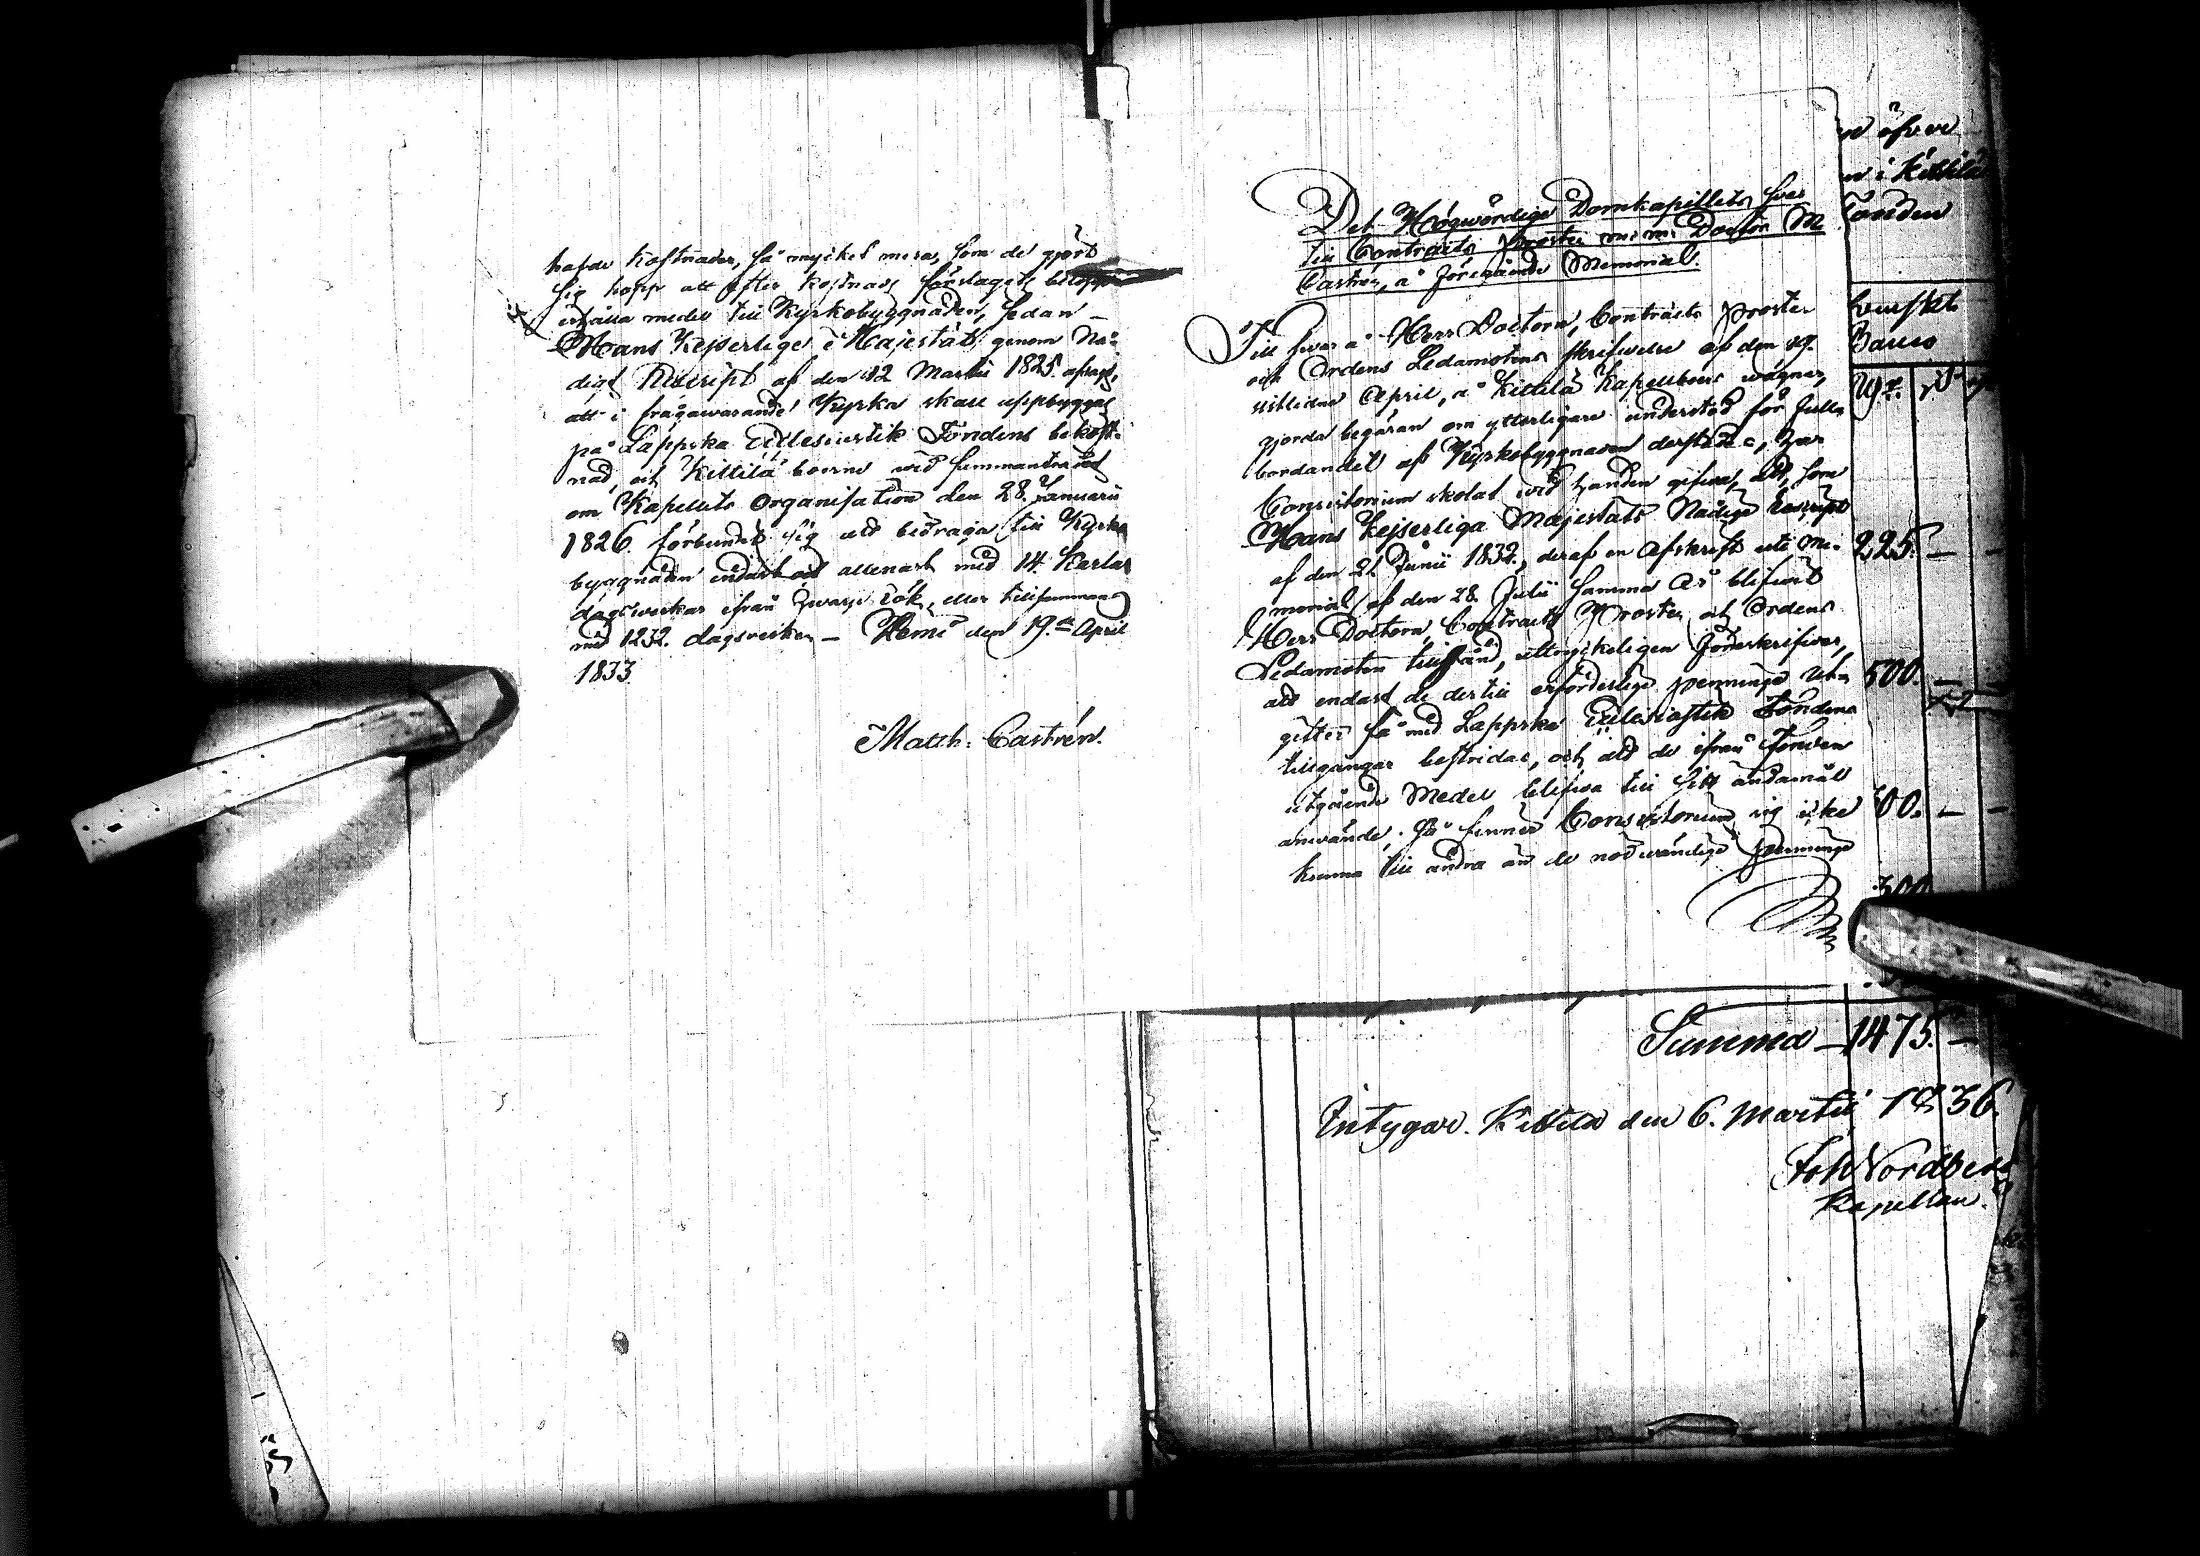 hafde kostnader, så mycket mera, som de gjort
sig hopp att efter kostnads förslagets belopp
erhålla medel till Kyrkobyggnaden, sedan
Hans Kejserlige Majestät genom Nå-
digt Rescript af den 12 Martii 1825 afsagt,
att i frågawarande Kyrka skall uppbyggas
på Lappska Ecclesiastik Fondens bekost-
nad, och Kittilä boerne wid sammanträdet
om Kapellets Organisation den 28. Januarii
1826 förbundit sig att bidraga till Kyrko
byggnaden endast och allenast med 14 Karlar
dagswerkar ifrån hwarje rök, eller tillsammans
med 1232 dagsverken – Kemi den 19.de April
1833
Matth: Castrén.
Det Högwördige Domkapitlets swar
till Contracts Prosten m.m. Doctor M
Castrén, å föregående Memorial.
Till swar å Herr Doctorn, Contracts Prosten
och Ordens Ledamotens skrifwelse af den 19.
sistlidne April, å Kittilä Kapellboers wägnar,
gjorda begäran om ytterligare understöd för full-
bordandet af Kyrkobyggnaden derstädes, har
Consistorium skolat wid handen gifwa, att, som
Hans Kejserliga Majestäts Nådige Rescript
af den 21 Junii 1832, deraf en Afskrift uti Me-
morial af den 28. Julii samma År blifwit
Herr Doctorn, Contracts Prosten och Ordens
Ledamoten tillsänd, uttryckeligen föreskrifwer,
att endast de dertill erforderlige penninge ut-
gifter få med Lappska Ecclesiastik Fondens
tillgångar bestridas, och att de ifrån Fonden
utgående Medel blifwa till sitt ändamål
använde; så finner Consistorium sig icke
kunna till andra än de nödwändiga penninge
öfver
i Kittilä
Fonden
Banco
225. –
500. –
00. –
300
Summa – 1475. –
Intygar. Kittilä den 6. Martii 1836.
Joh Nordberg
Kapellan.